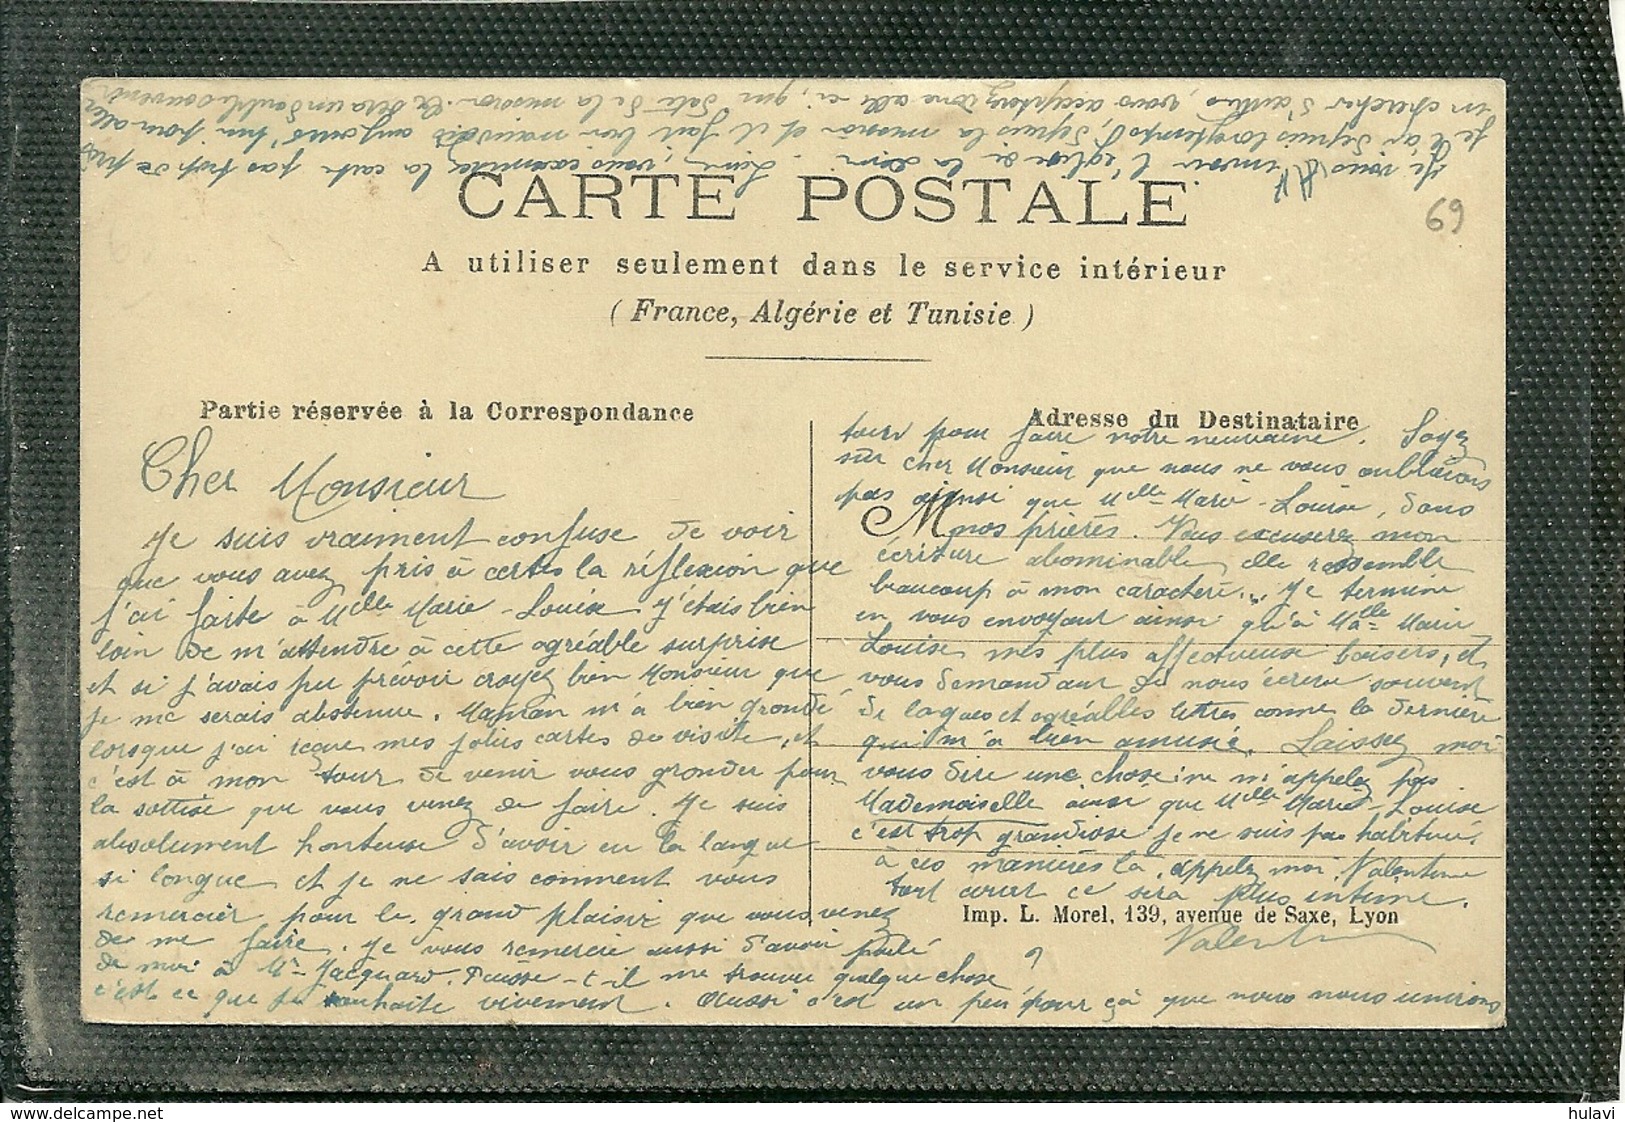 Je vous envoie l'église de la
lui, vous examinez la carte pas trop de près
je l'ai depuis longtemps, depuis la mission et il faut bon
en chercher d'autres, vous accepterez donc celle ci, qui date de la mission. Ce sera un double souvenir
CARTE POSTALE
69
A utiliser seulement dans le service intérieur
(France, Algérie et Tunisie)
Partie réservée à la Correspondance
Cher Monsieur
Je suis vraiment confuse de voir
que vous avez pris à certes la réflexion que
j'ai faite à Mlle Marie-Louise j'étais bien
loin de m'attendre à cette agréable surprise
et si j'avais pu prévoir croyez bien Monsieur que
je me serais abstenue. Maman m'a bien grondé
lorsque j'ai reçue mes jolies cartes de visite, et
c'est à mon tour de venir vous gronder pour
la sottise que vous venez de faire. Je suis
absolument honteuse d'avoir eu la langue
si longue et je ne sais comment vous
remercier pour le grand plaisir que vous venez
de me faire. Je vous remercie aussi d'avoir parlé
de moi à Mr Jacquard. Puisse-t-il me trouver quelque chose ?
c'est ce que je souhaite vivement. Aussi c'est un peu pour çà que nous nous unirons
Adresse du Destinataire
tous pour faire notre neuvaine. Soyez
sûr cher Monsieur que nous ne vous oublierons
pas ainsi que Mlle Marie-Louise, dans
M
nos prières. Vous excuserez mon
écriture abominable, elle ressemble
beaucoup à mon caractère... Je termine
en vous envoyant ainsi qu'à Mlle Marie
Louise mes plus affectueux baisers, et
vous demandant de nous écrire souvent
de longues et agréables lettres comme la dernière
qui m'a bien amusée. Laissez moi
vous dire une chose: ne m'appelez pas
Mademoiselle ainsi que Mlle Marie-Louise
c'est trop grandiose je ne suis pas habituée
à ces manières là, appelez moi Valentine
tout court ce sera plus intime.
Imp. L. Morel, 139, avenue de Saxe, Lyon
Valentine
hulavi
www.delcampe.net